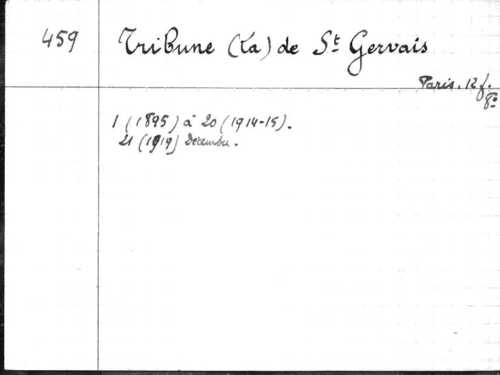 459
Tribune (La) de St Gervais
Paris. 12 f.
8º
1 (1895) à 20 (1914-15).
21 (1919) Decembre.